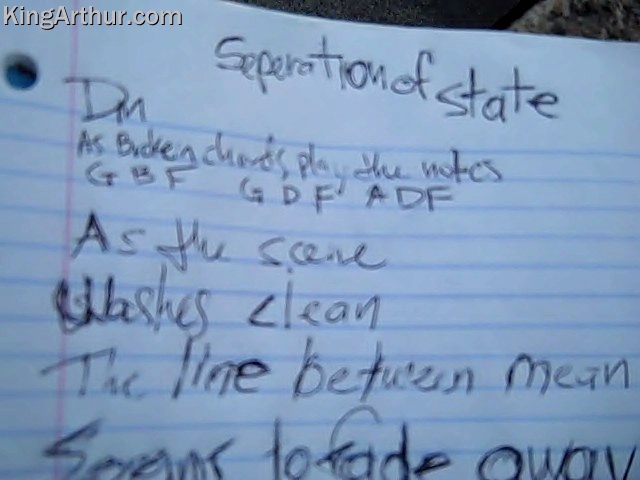 KingArthur.com
Seperation of state
Dm
As Broken chords, play the notes
G B F G D F A D F
As the scene
Washes clean
The line between mean
Seems to fade away